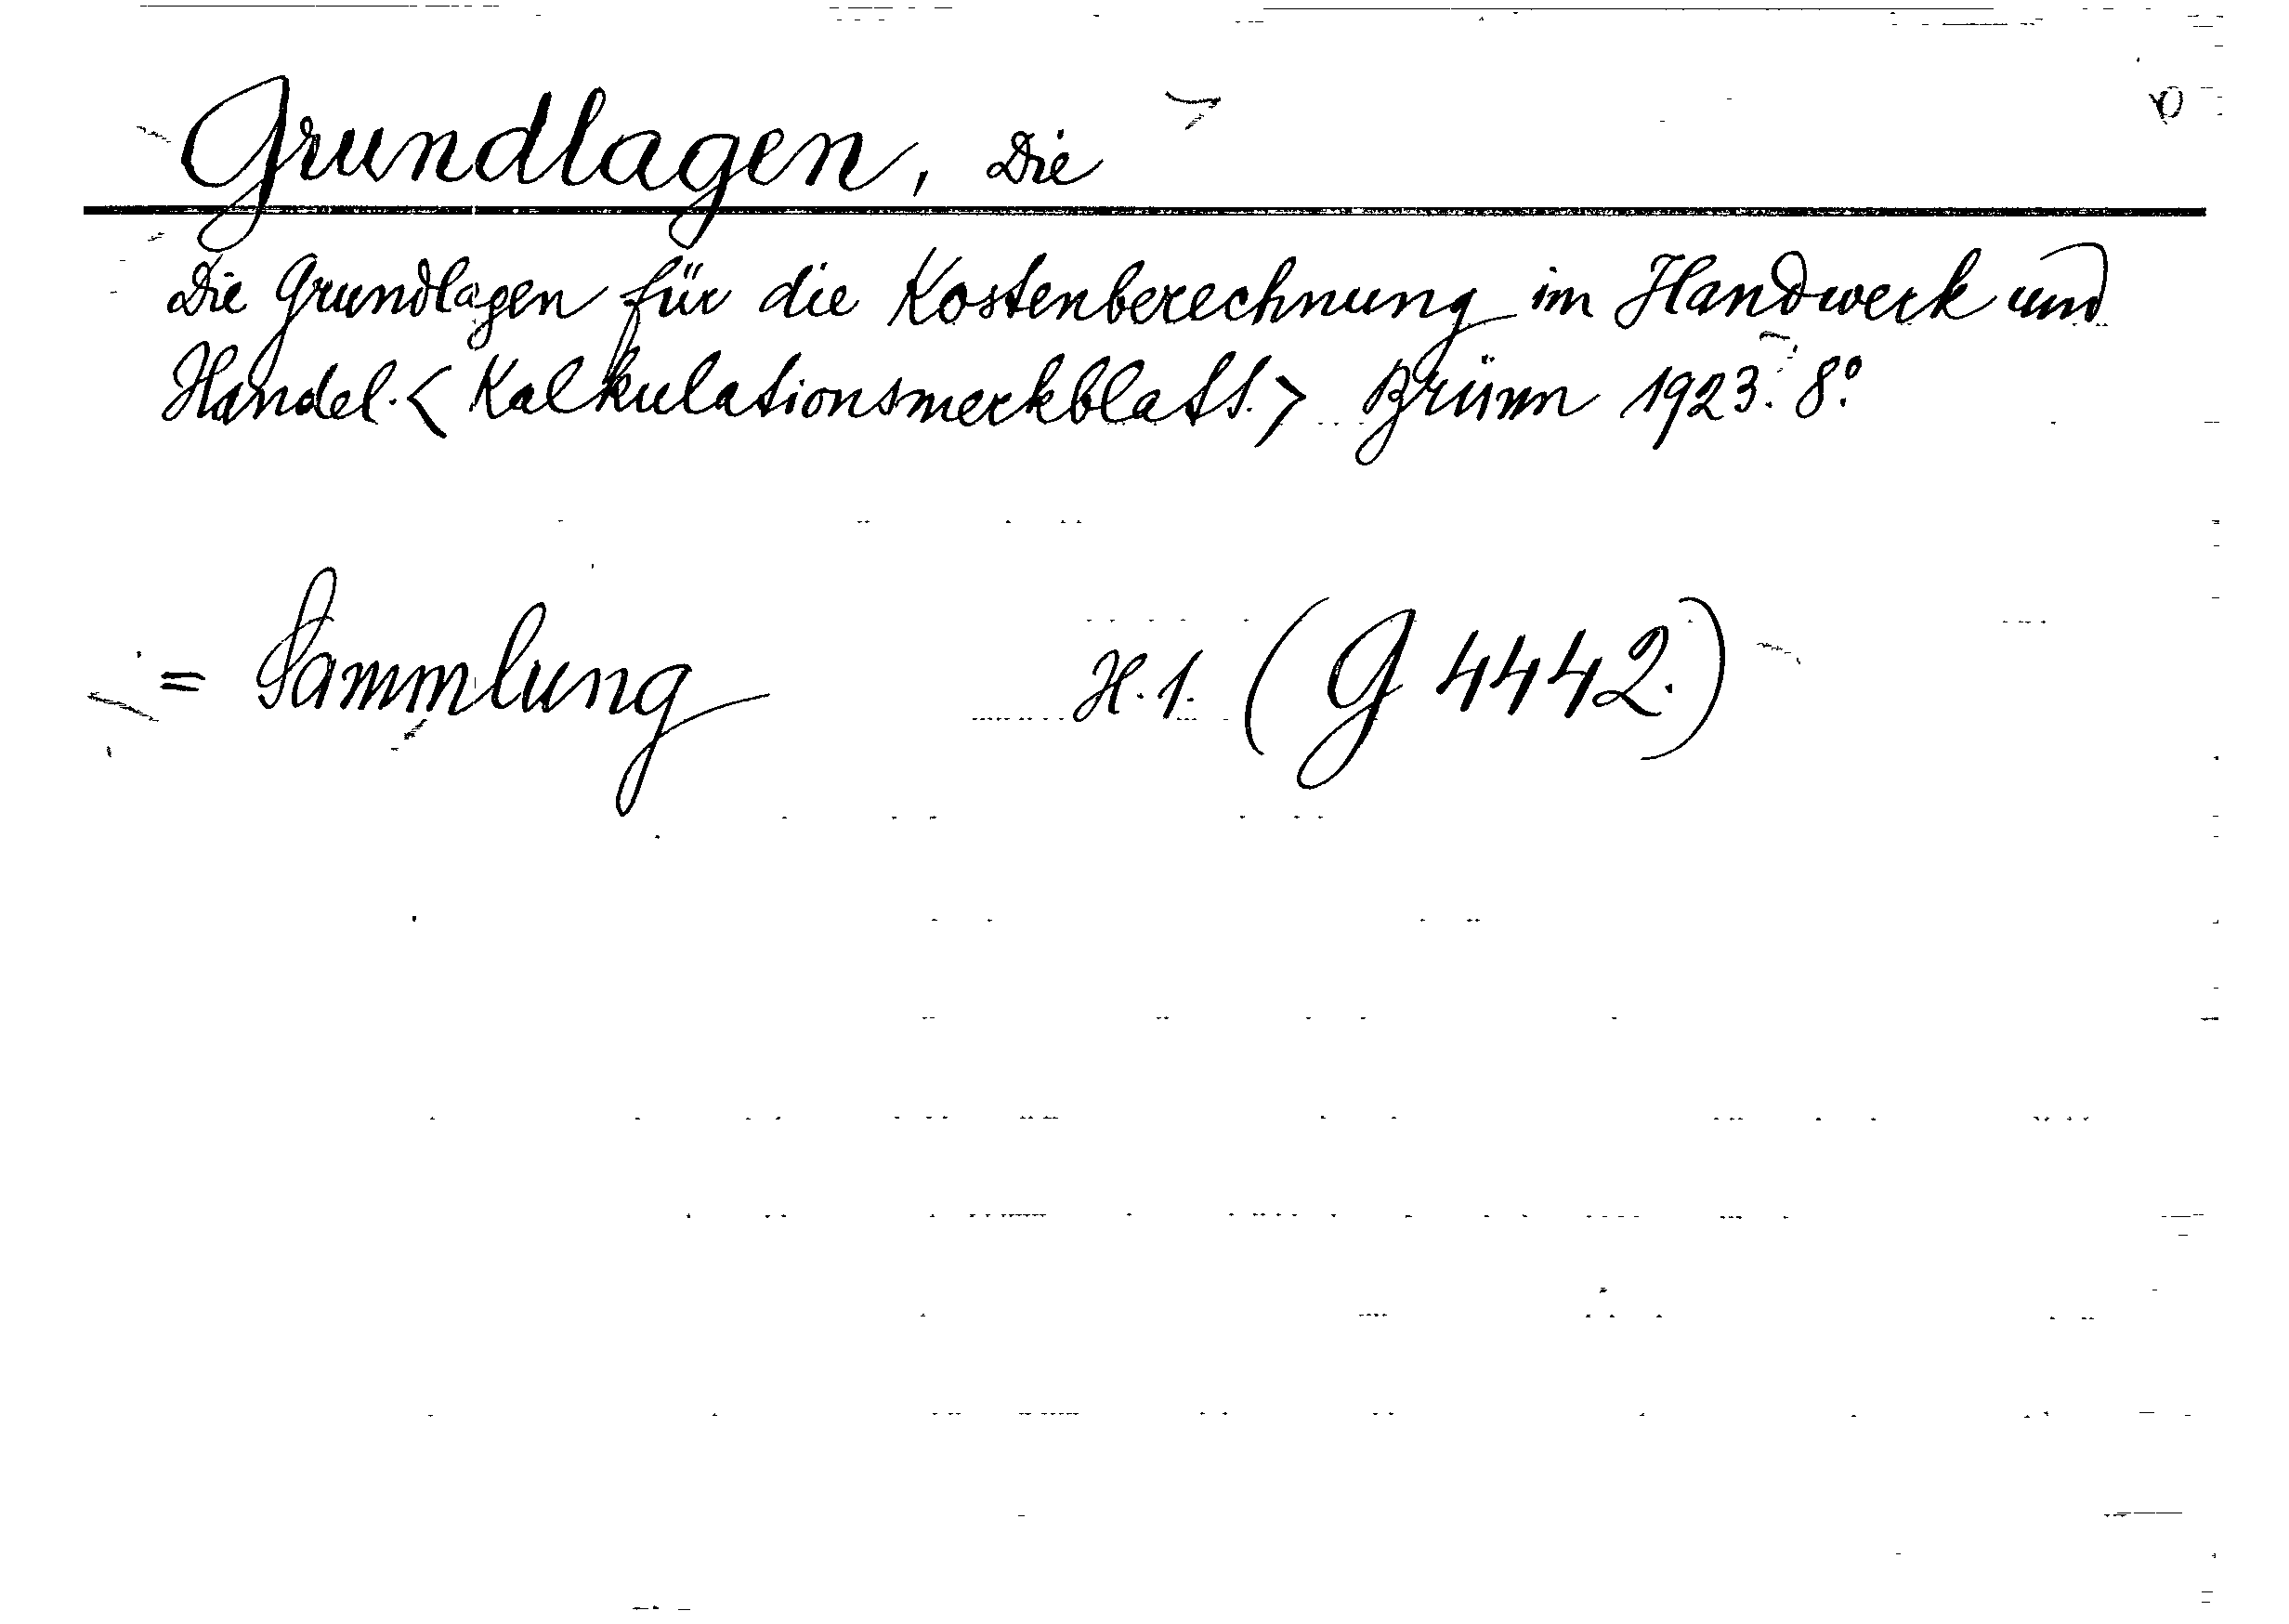 Grundlagen, Die
Die Grundlagen für die Kostenberechnung im Handwerk und
Handel. < Kalkulationsmerkblatt. > Brünn 1923. 8°.
= Sammlung H. 1. (G 4442.)